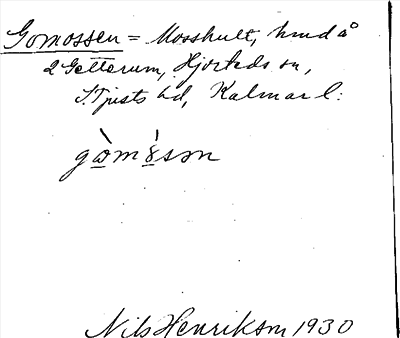 Gomossen = Mosshult, hmd å
2 Getterum, Hjorteds sn,
S. Tjusts hd, Kalmar l:
gòmòsən
Nils Henrikson 1930